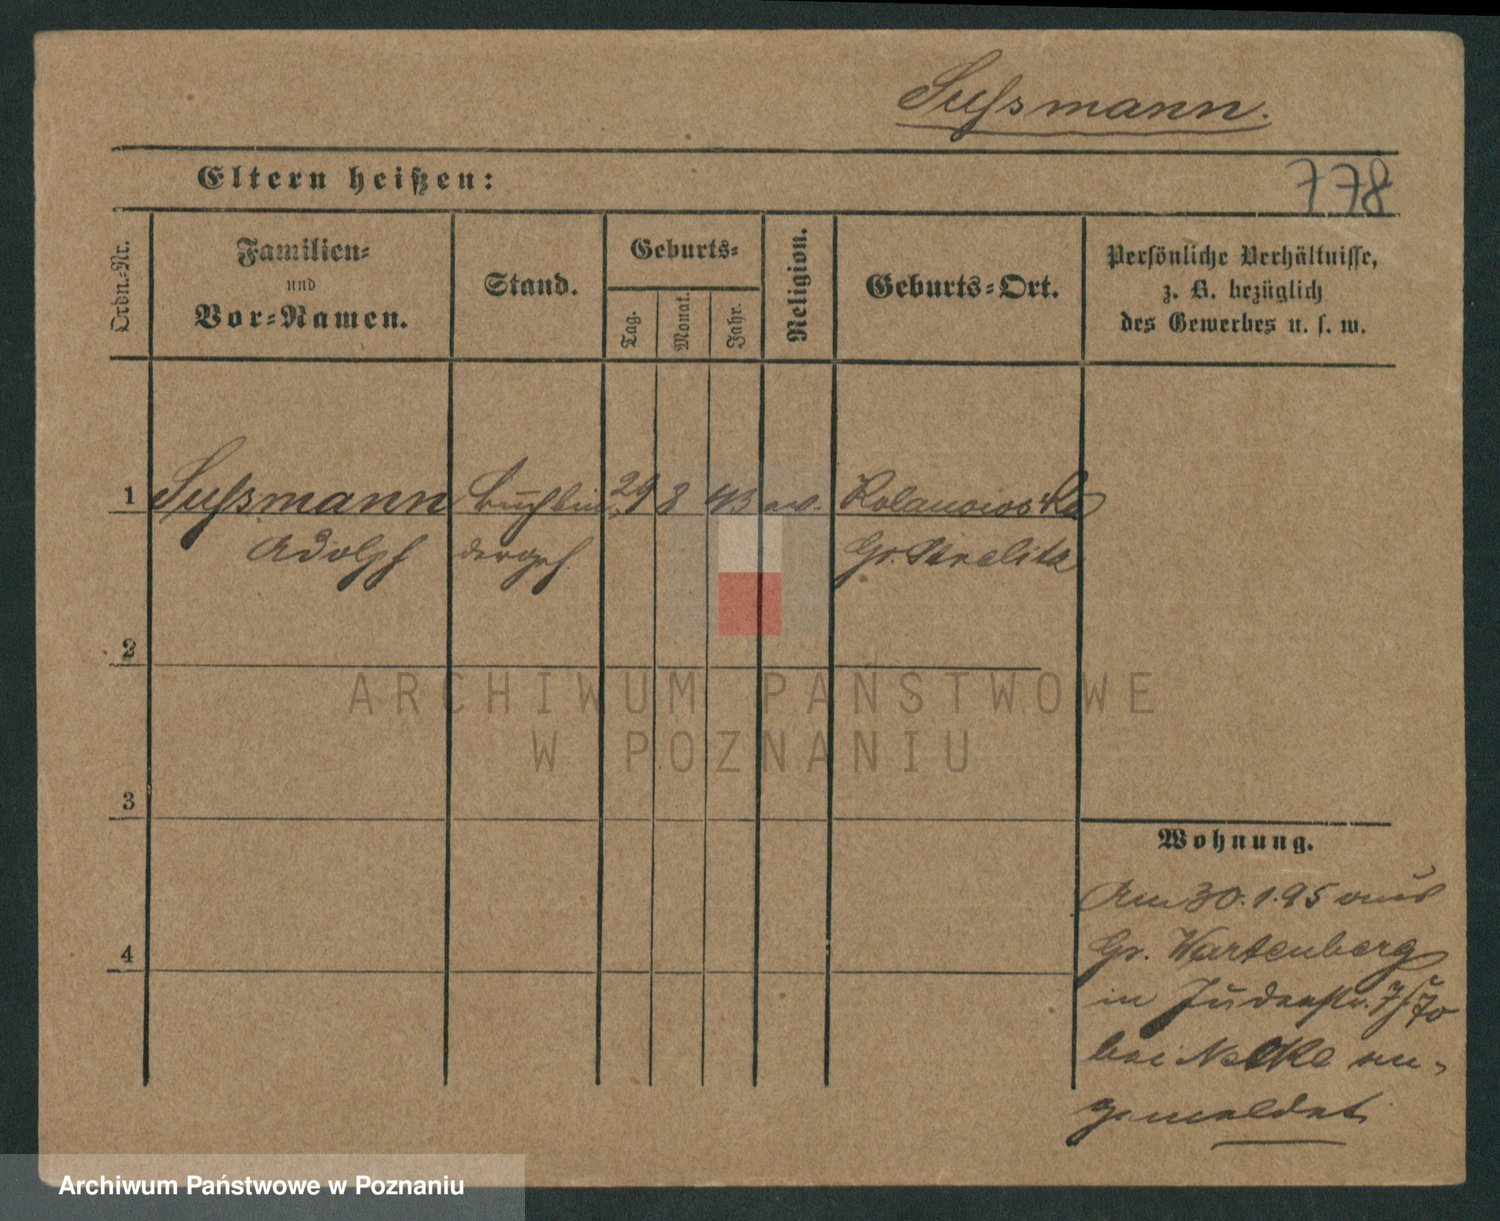 Sußmann.
Eltern heißen:
778
Ordn.-Nr.
Familien-
und
Vor-Namen.
Stand.
Geburts-
Tag.
Monat.
Jahr.
Religion.
Geburts-Ort.
Persönliche Verhältnisse,
z. B. bezüglich
des Gewerbes u. s. w.
1 Sußmann Buchbin 29 8 43 ev.
Adolph dergeh Gr. Strelitz
2
3
4
Wohnung.
Am 30.1.95 aus
Gr. Wartenberg
in Judenstr.
bei an-
gemeldet
ARCHIWUM PAŃSTWOWE
W POZNANIU
Archiwum Państwowe w Poznaniu